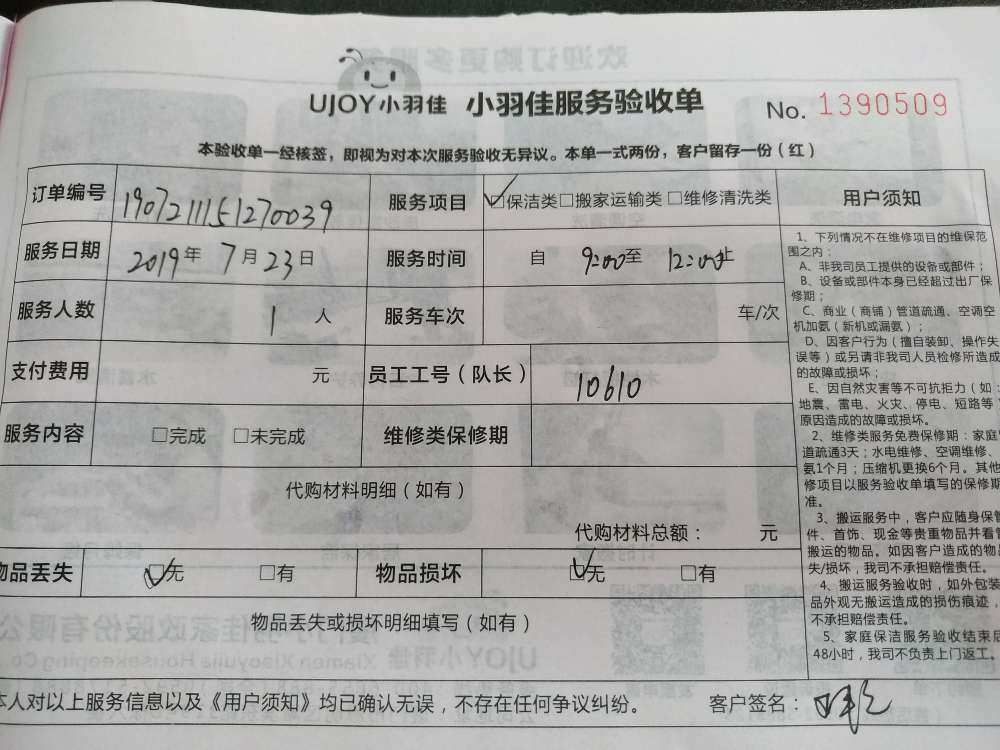 UJOY小羽佳 小羽佳服务验收单 No. 1390509
本验收单一经核签，即视为对本次服务验收无异议。本单一式两份，客户留存一份（红）
订单编号 1907211151270039 服务项目 ☑保洁类□搬家运输类□维修清洗类
服务日期 2019年7月23日 服务时间 自 9:00至 12:00止
服务人数 1 人 服务车次 车/次
支付费用 元 员工工号（队长） 10610
服务内容 □完成 □未完成 维修类保修期
代购材料明细（如有）
代购材料总额： 元
物品丢失 ☑无 □有 物品损坏 ☑无 □有
物品丢失或损坏明细填写（如有）
本人对以上服务信息以及《用户须知》均已确认无误，不存在任何争议纠纷。 客户签名：
用户须知
1、下列情况不在维修项目的维保范
围之内：
A、非我司员工提供的设备或部件；
B、设备或部件本身已经超过出厂保
修期；
C、商业（商铺）管道疏通、空调空
机加氨（新机或漏氨）；
D、因客户行为（擅自装卸、操作失
误等）或另请非我司人员检修所造成
的故障或损坏；
E、因自然灾害等不可抗拒力（如：
地震、雷电、火灾、停电、短路等）
原因造成的故障或损坏。
2、维修类服务免费保修期：家庭
道疏通3天；水电维修、空调维修、
氨1个月；压缩机更换6个月。其他
修项目以服务验收单填写的保修期
准。
3、搬运服务中，客户应随身保管
件、首饰、现金等贵重物品并看管
搬运的物品。如因客户造成的物品
失/损坏，我司不承担赔偿责任。
4、搬运服务验收时，如外包装
品外观无搬运造成的损伤痕迹，
不承担赔偿责任。
5、家庭保洁服务验收结束后
48小时，我司不负责上门返工。